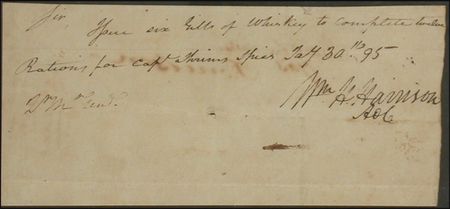 Sir,
Issue six Gills of Whiskey to complete twelve
Rations for Capt Shrims Spies Jay 30th 95
Wm H. Harrison
ADC